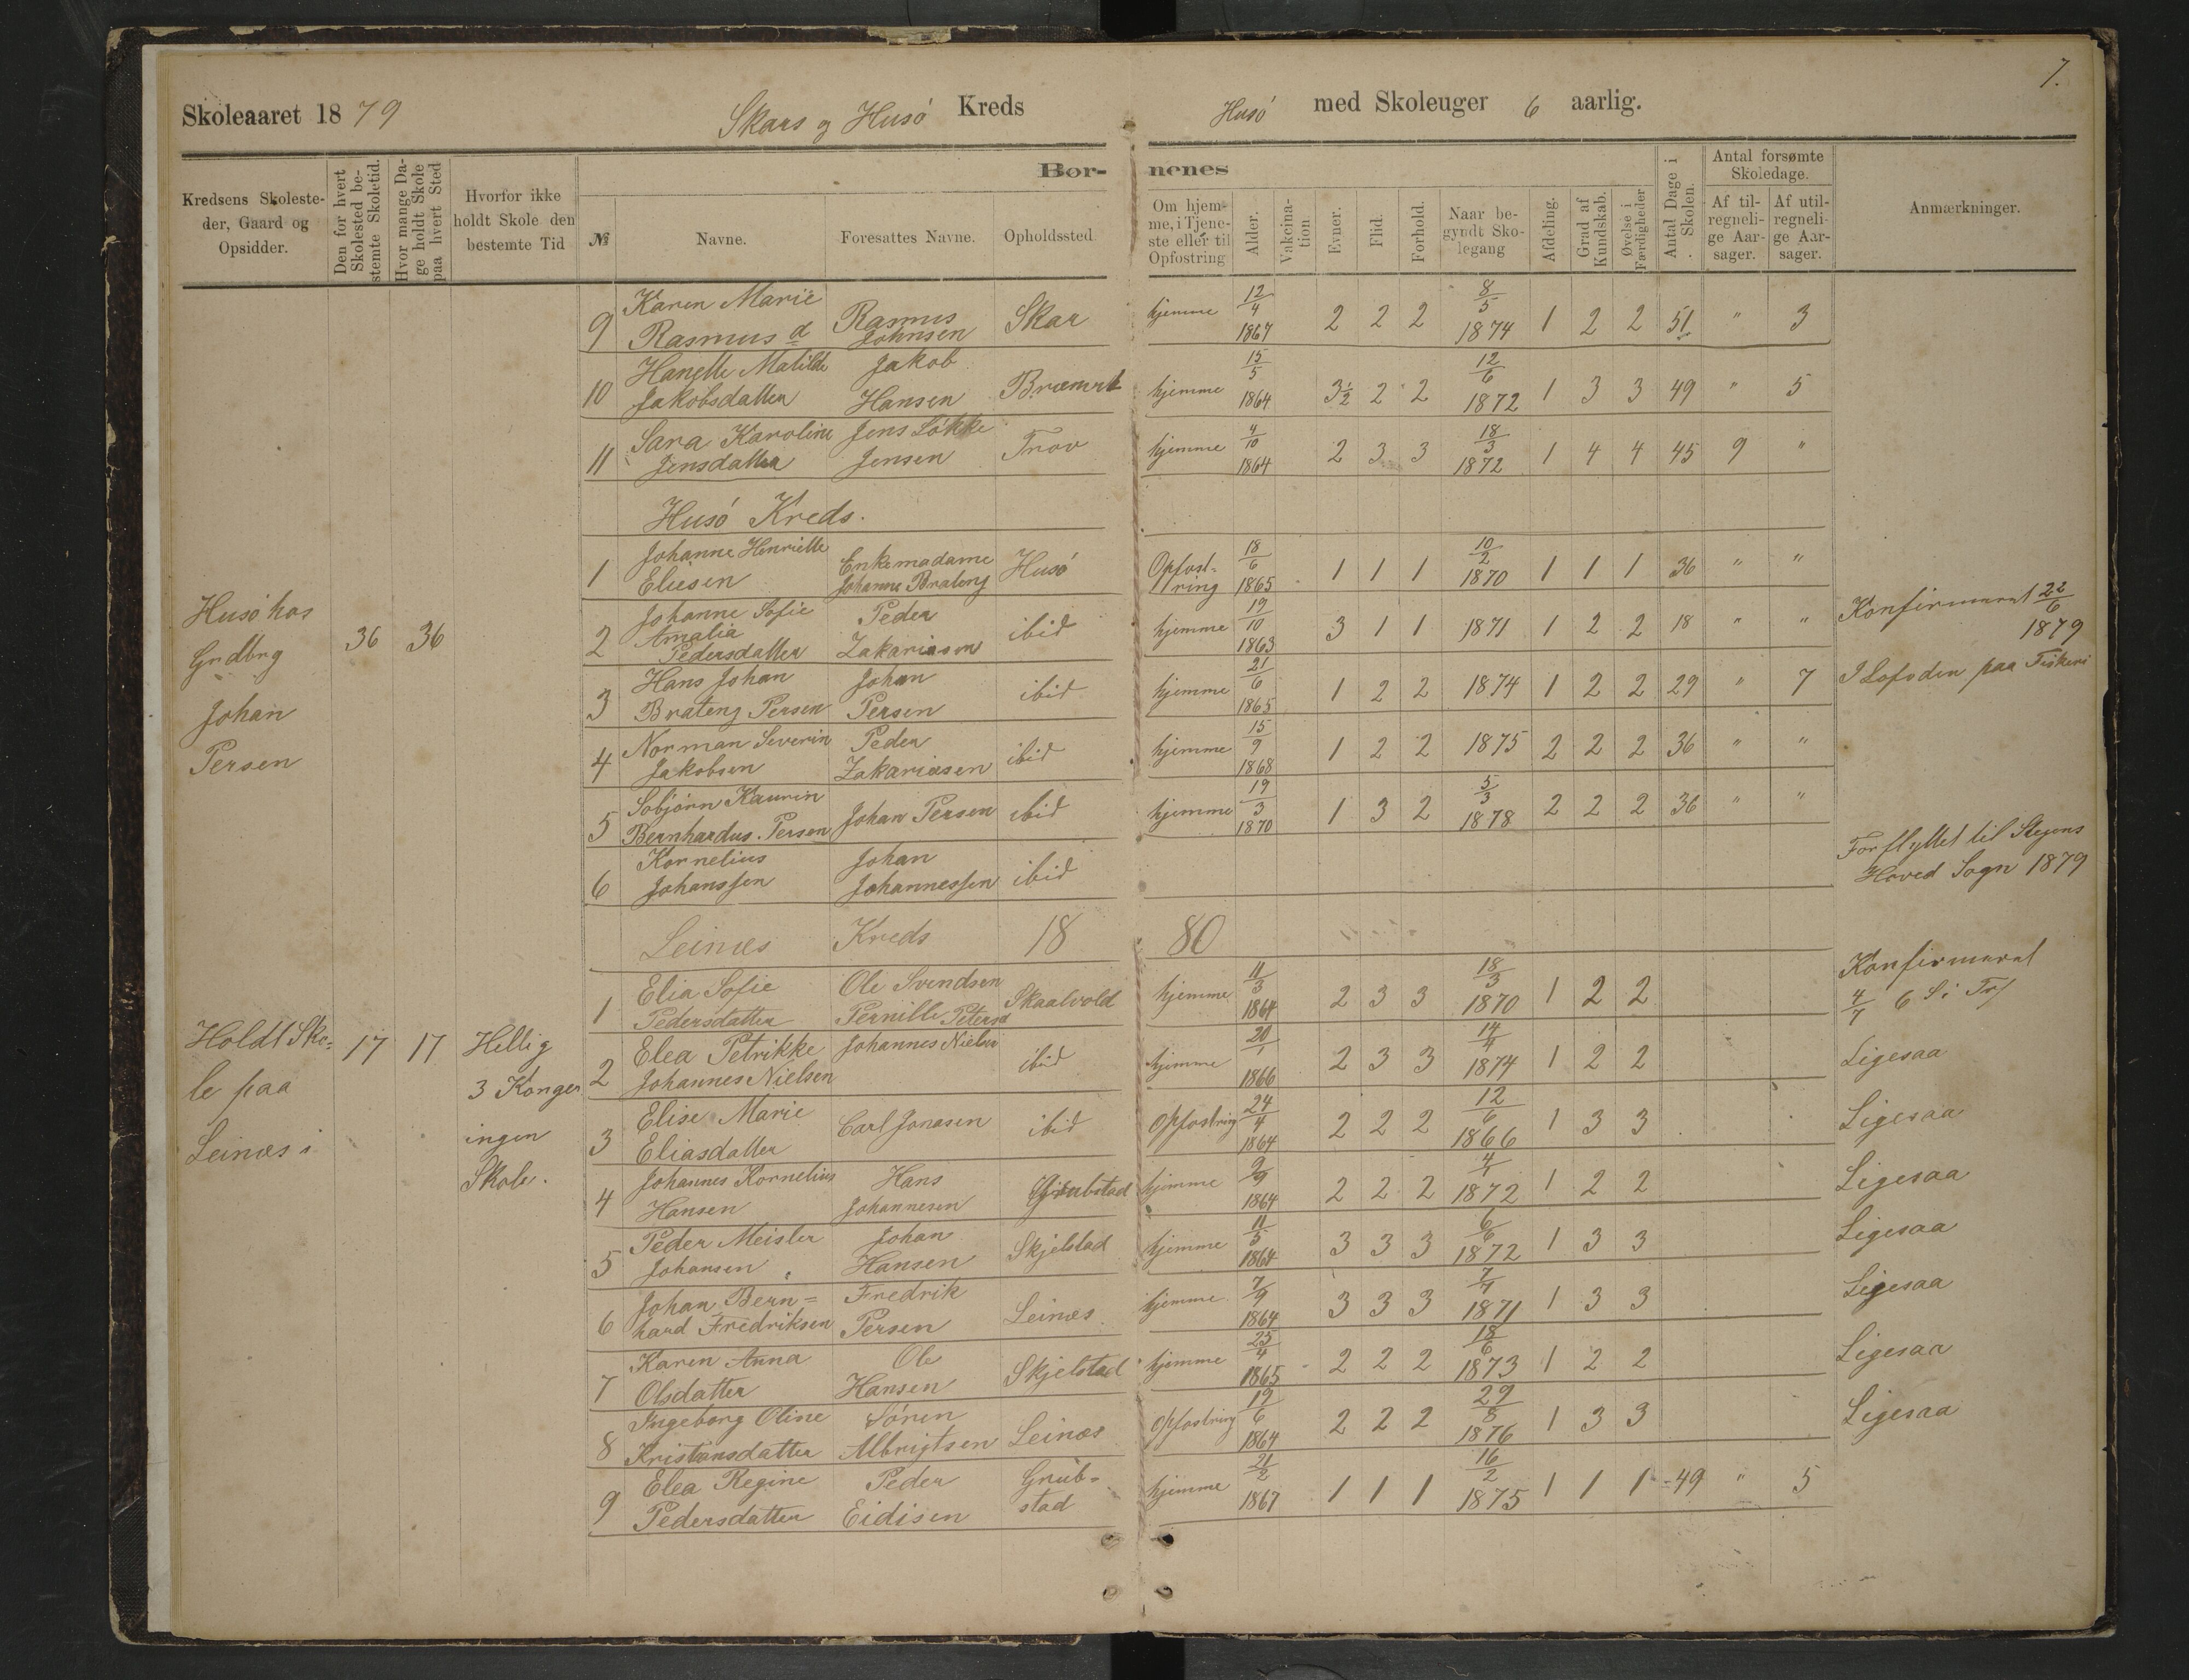 7.
Skoleaaret 1879 Skars og Husö Kreds Husö med Skoleuger 6 aarlig.
Kredsens Skolesteder, Gaard og Opsidder.
Den for hvert Skolested bestemte Skoletid.
Hvor mange Dage holdt Skole paa hvert Sted
Hvorfor ikke holdt Skole den bestemte Tid
Børnenes
№ Navne. Foresattes Navne. Opholdssted
Om hjemme, i Tjeneste eller til Opfostring
Alder. Vakcination Evner. Flid. Forhold.
Naar begyndt Skolegang
Afdeling. Grad af Kundskab. Øvelse i Færdigheder
Antal Dage i Skolen.
Antal forsømte Skoledage.
Af tilregnelige Aarsager. Af utilregnelige Aarsager.
Anmærkninger.
9 Karen Marie Rasmus d Rasmus Johnsen Skar hjemme 12/4 1867 2 2 2 8/5 1874 1 2 2 51 " 3
10 Hanette Matilde Jakobsdatter Jakob Hansen hjemme 15/5 1864 3½ 2 2 12/6 1872 1 3 3 49 " 5
11 Sara Karoline Jensdatter Jens Løkke Jensen Trov hjemme 4/10 1864 2 3 3 18/3 1872 1 4 4 45 9 "
Husö Kreds.
Husö hos Grdbrg Johan Persen 36 36
1 Johanne Henriette Eliesen Enkemadame Johanne Brateng Husö Opfostring 18/6 1865 1 1 1 10/2 1870 1 1 1 36 " "
2 Johanne Sofie Amalia Pedersdatter Peder Zakariasen ibid hjemme 19/10 1863 3 1 1 1871 1 2 2 18 " " Konfirmeret 22/6 1879
3 Hans Johan Brateng Persen Johan Persen ibid hjemme 21/6 1865 1 2 2 1874 1 2 2 29 " 7 I Lofoden paa Fiskeri
4 Norman Severin Jakobsen Peder Zakariasen ibid hjemme 15/9 1868 1 2 2 1875 2 2 2 36 " "
5 Sobjörn Kaurin Bernhardus. Persen Johan Persen ibid hjemme 19/3 1870 1 3 2 5/3 1878 2 2 2 36 " "
6 Kornelius Johanssen Johan Johannessen ibid Forflyttet til Stegens Hoved Sogn 1879
Leinæs Kreds 1880
Holdt Skole paa Leinæs i 17 17 Hellig 3 Konger ingen Skole.
1 Elia Sofie Pedersdatter Ole Svendsen Pernille Petersd Skaalvold hjemme 11/3 1864 2 3 3 18/3 1870 1 2 2 Konfirmeret 4/7 6 S i Trf
2 Elea Petrikke Johannes Nielsen Johannes Nielsen ibid hjemme 20/1 1866 2 3 3 14/4 1874 1 2 2 Ligesaa
3 Elise Marie Eliasdatter Carl Jonasen ibid Opfostring 24/4 1864 2 2 2 12/6 1866 1 3 3 Ligesaa
4 Johannes Kornelius Hansen Hans Johannesen hjemme 9/9 1864 2 2 2 4/1 1872 1 2 2 Ligesaa
5 Peder Meisler Johansen Johan Hansen Skjelstad hjemme 11/5 1864 3 3 3 6/6 1872 1 3 3 Ligesaa
6 Johan Bernhard Fredriksen Fredrik Persen Leines hjemme 7/9 1864 3 3 3 7/4 1871 1 3 3 Ligesaa
7 Karen Anna Olsdatter Ole Hansen Skjelstad hjemme 25/4 1865 2 2 2 18/6 1873 1 2 2 Ligesaa
8 Ingeborg Oline Kristiansdatter Sören Albrigtsen Leinæs Opfostring 19/6 1864 2 2 2 29/8 1876 1 3 3 Ligesaa
9 Elea Regine Pedersdatter Peder Eidisen Grubstad hjemme 21/2 1867 1 1 1 16/2 1875 1 1 1 49 " 5